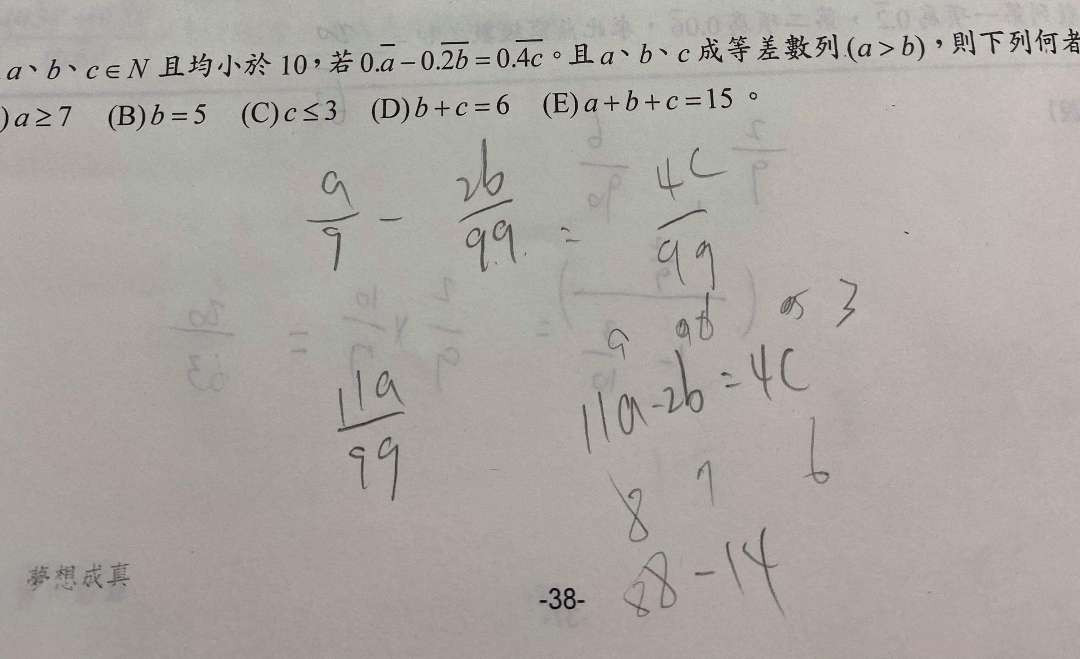 a、b、c∈N 且均小於 10，若 0.a̅ − 0.2̅b̅ = 0.4̅c̅。且 a、b、c 成等差數列 (a > b)，則下列何者
) a ≥ 7 (B) b = 5 (C) c ≤ 3 (D) b + c = 6 (E) a + b + c = 15。
a/9 − 2b/99 = 4C/99
11a/99
11a − 2b = 4C
8 7 6
88 − 14
夢想成真
-38-